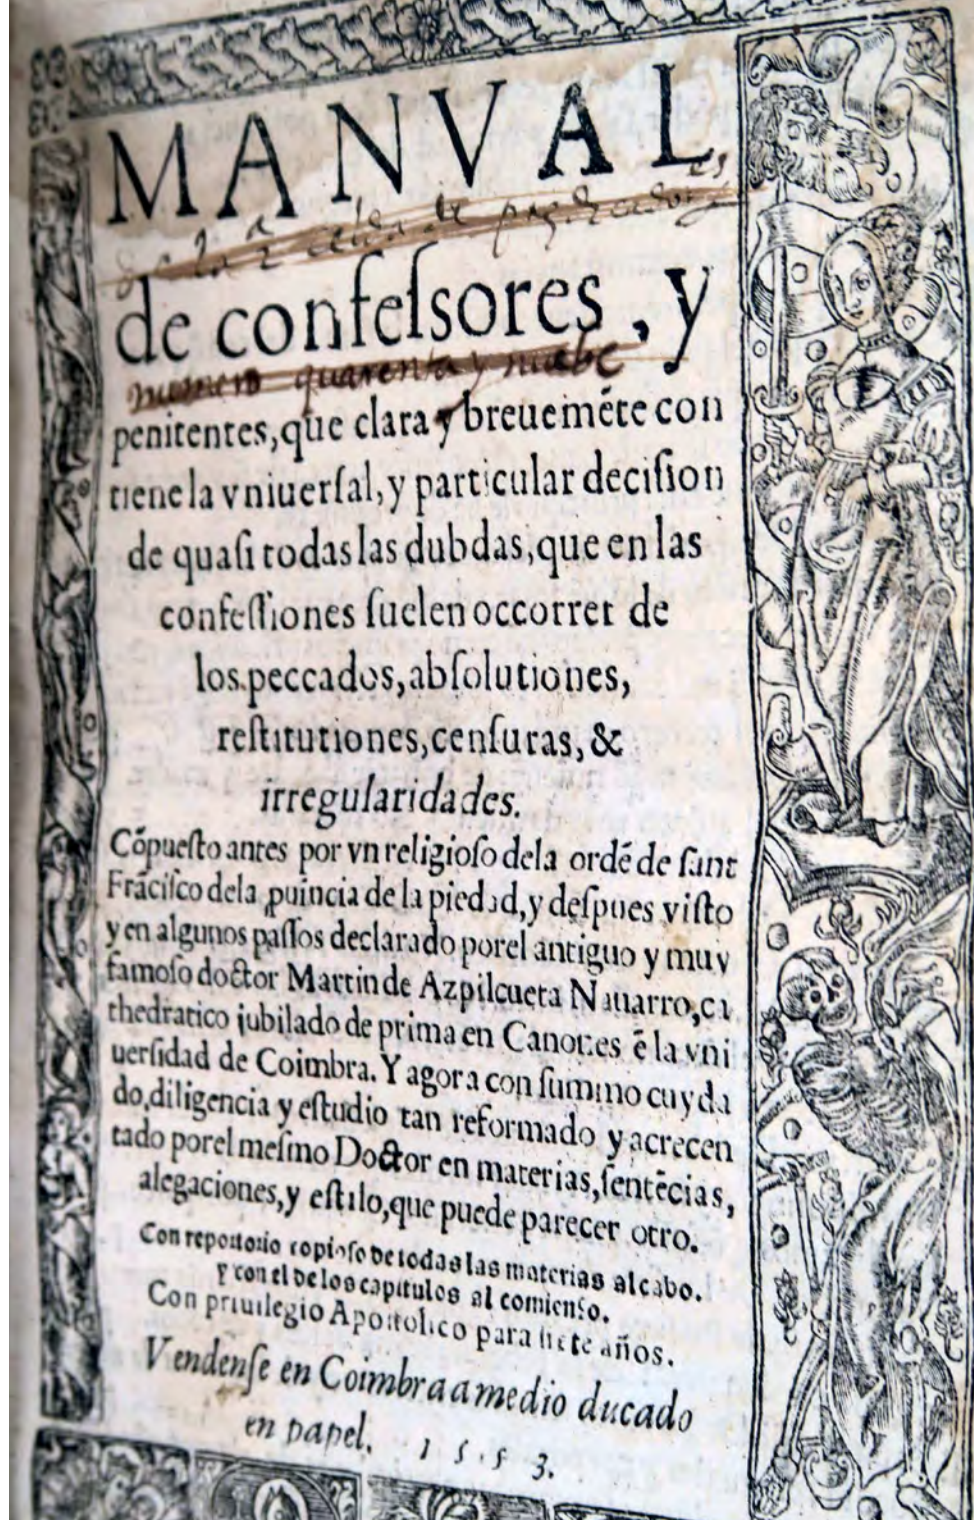 MANVAL
de predicadores
de confeſsores, y
numero quarenta y nuebe
penitentes, que clara y breuemẽte con
tiene la vniuerſal, y particular deciſion
de quaſi todas las dubdas, que en las
confeſſiones ſuelen occorrer de
los peccados, abſolutiones,
reſtitutiones, cenſuras, &
irregularidades.
Cõpueſto antes por vn religioſo dela ordẽ de ſant
Frãciſco dela ꝓuincia de la piedad, y deſpues viſto
y en algunos paſſos declarado porel antiguo y muy
famoſo doctor Martin de Azpilcueta Nauarro, ca
thedratico jubilado de prima en Canones ẽ la vni
uerſidad de Coimbra. Y agora con ſummo cuyda
do, diligencia y eſtudio tan reformado y acrecen
tado porel meſmo Doctor en materias, ſentẽcias,
alegaciones, y eſtilo, que puede parecer otro.
Con repottorio copioſo de todas las materias al cabo.
y con el de los capitulos al comienſo.
Con priuilegio Apoſtolico para ſiete años.
Vendenſe en Coimbra a medio ducado
en papel. 1 5 5 3.